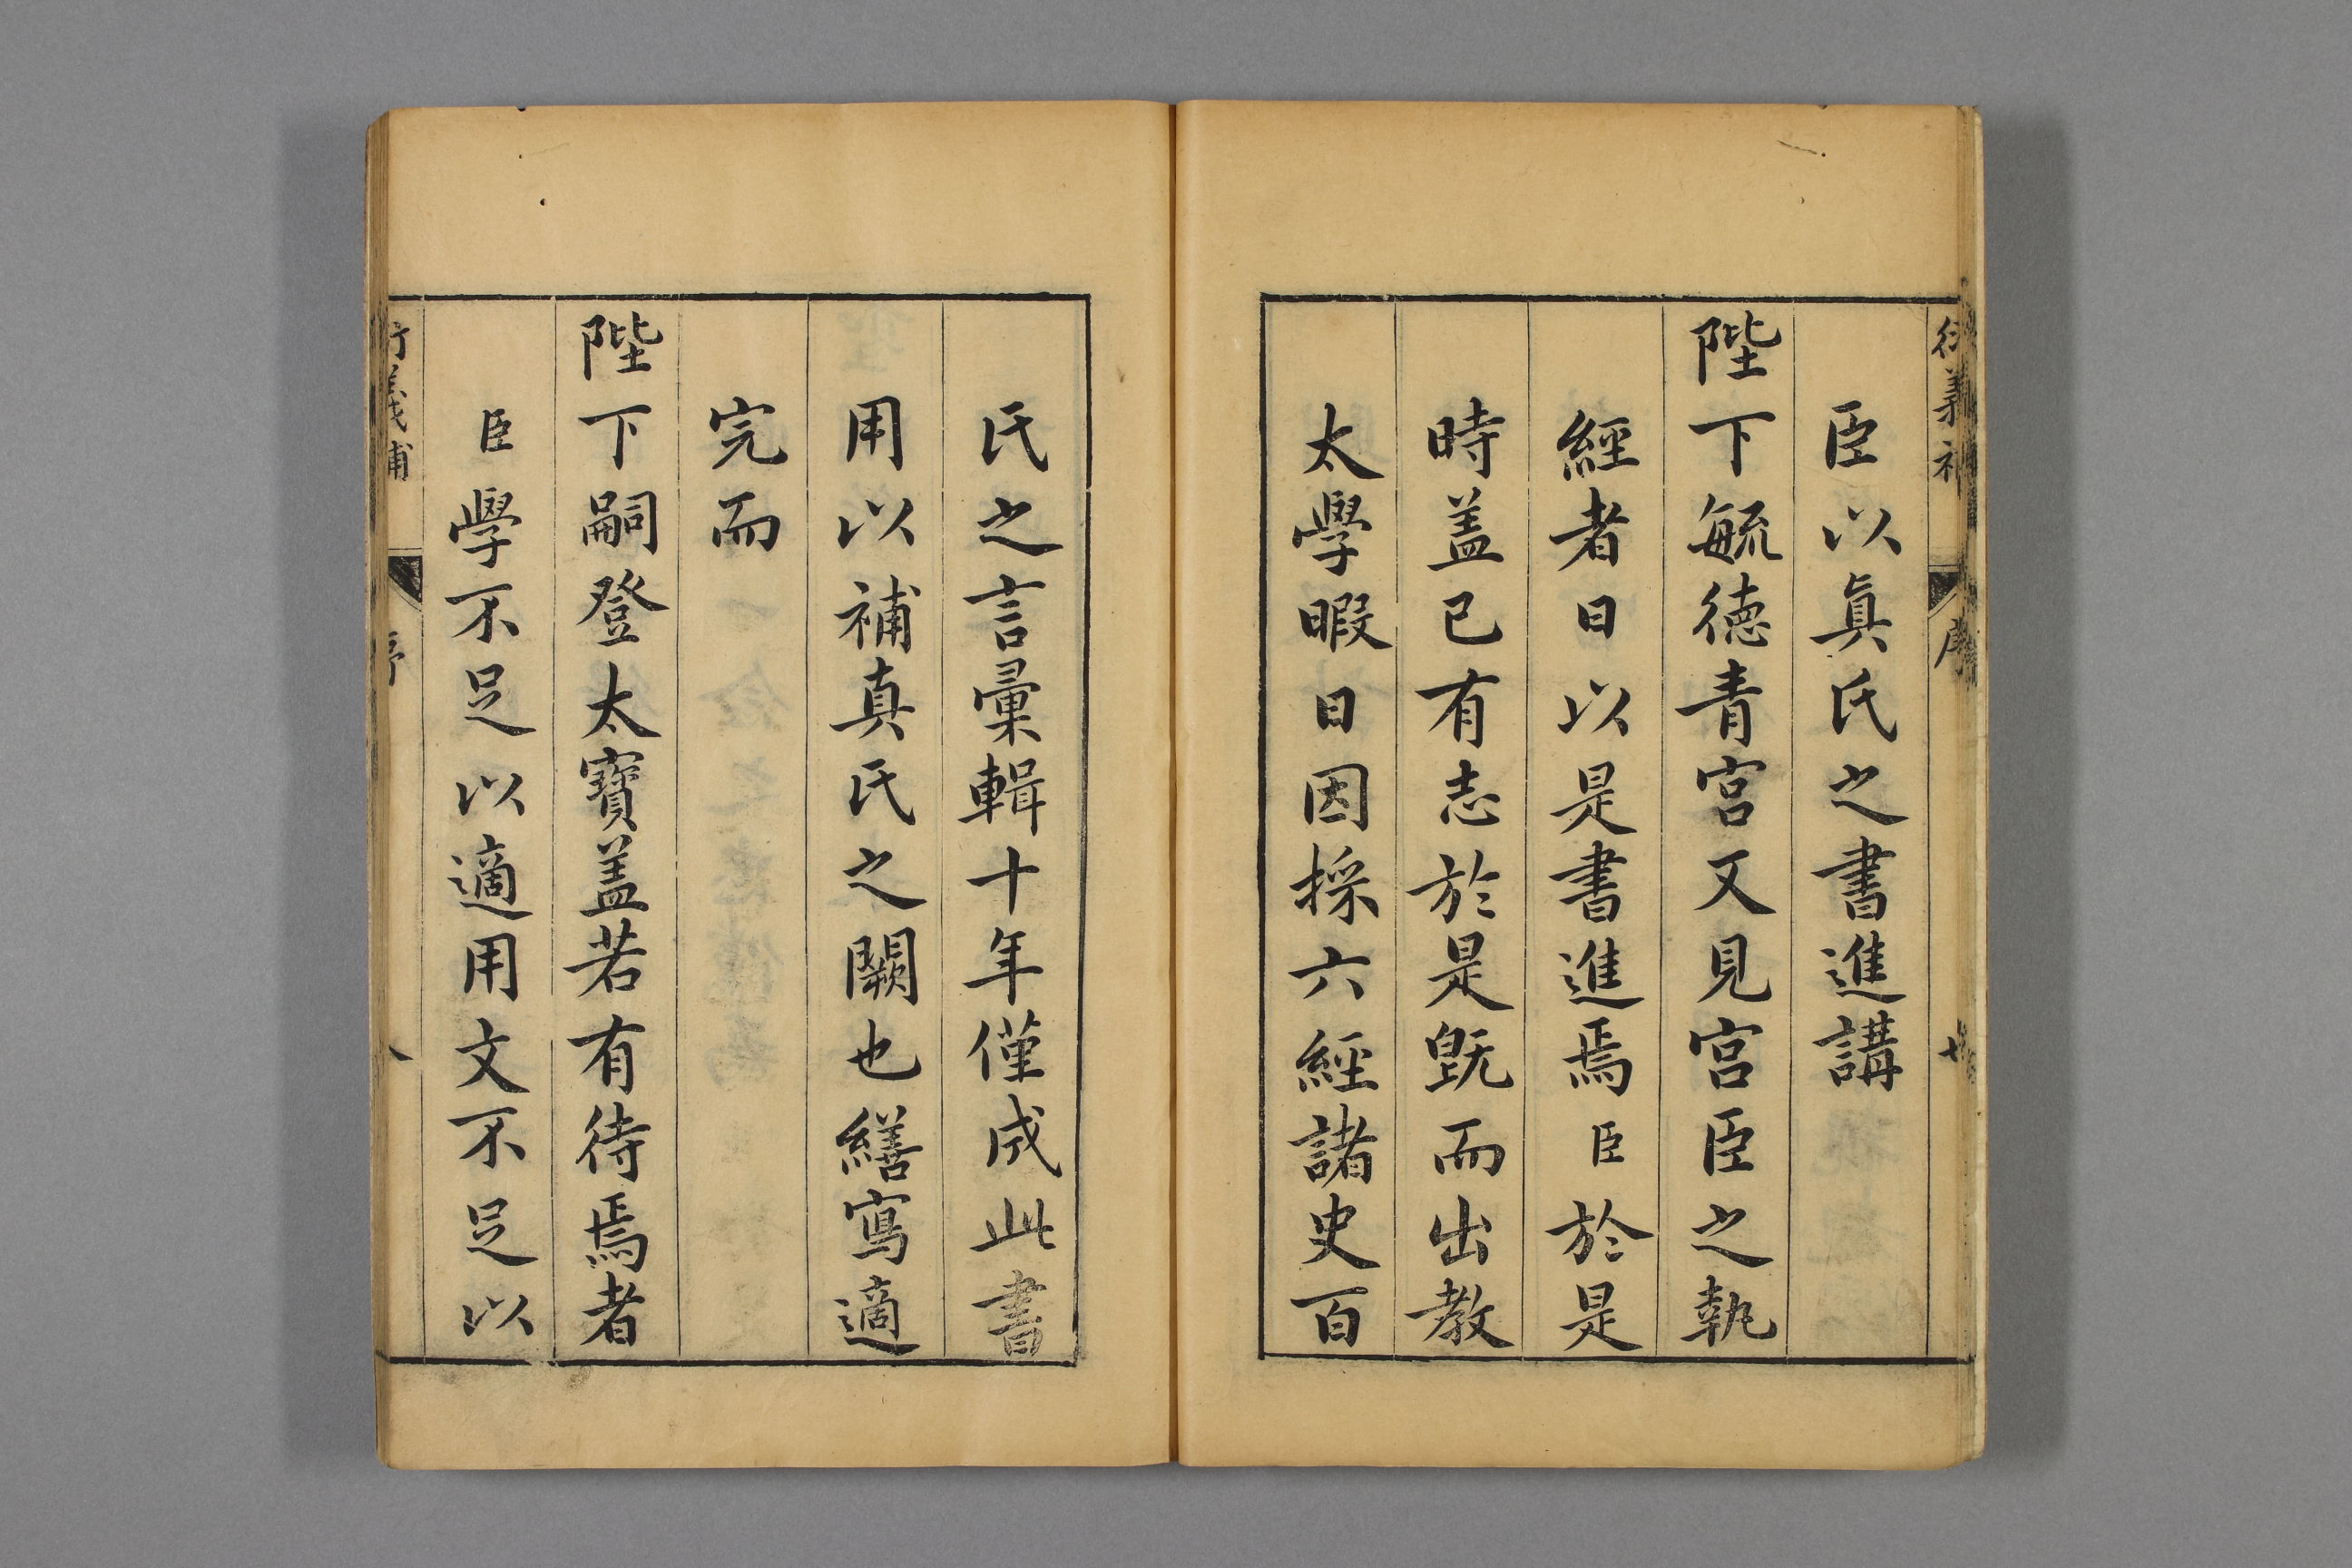 衍義補 序 七
臣以眞氏之書進講
陛下毓德青宮又見宮臣之執
經者日以是書進焉臣於是
時盖已有志於是旣而出教
太學暇日因採六經諸史百
氏之言彙輯十年僅成此書
用以補真氏之闕也繕寫適
完而
陛下嗣登大寶盖若有待焉者
臣學不足以適用文不足以
衍義補 序 八